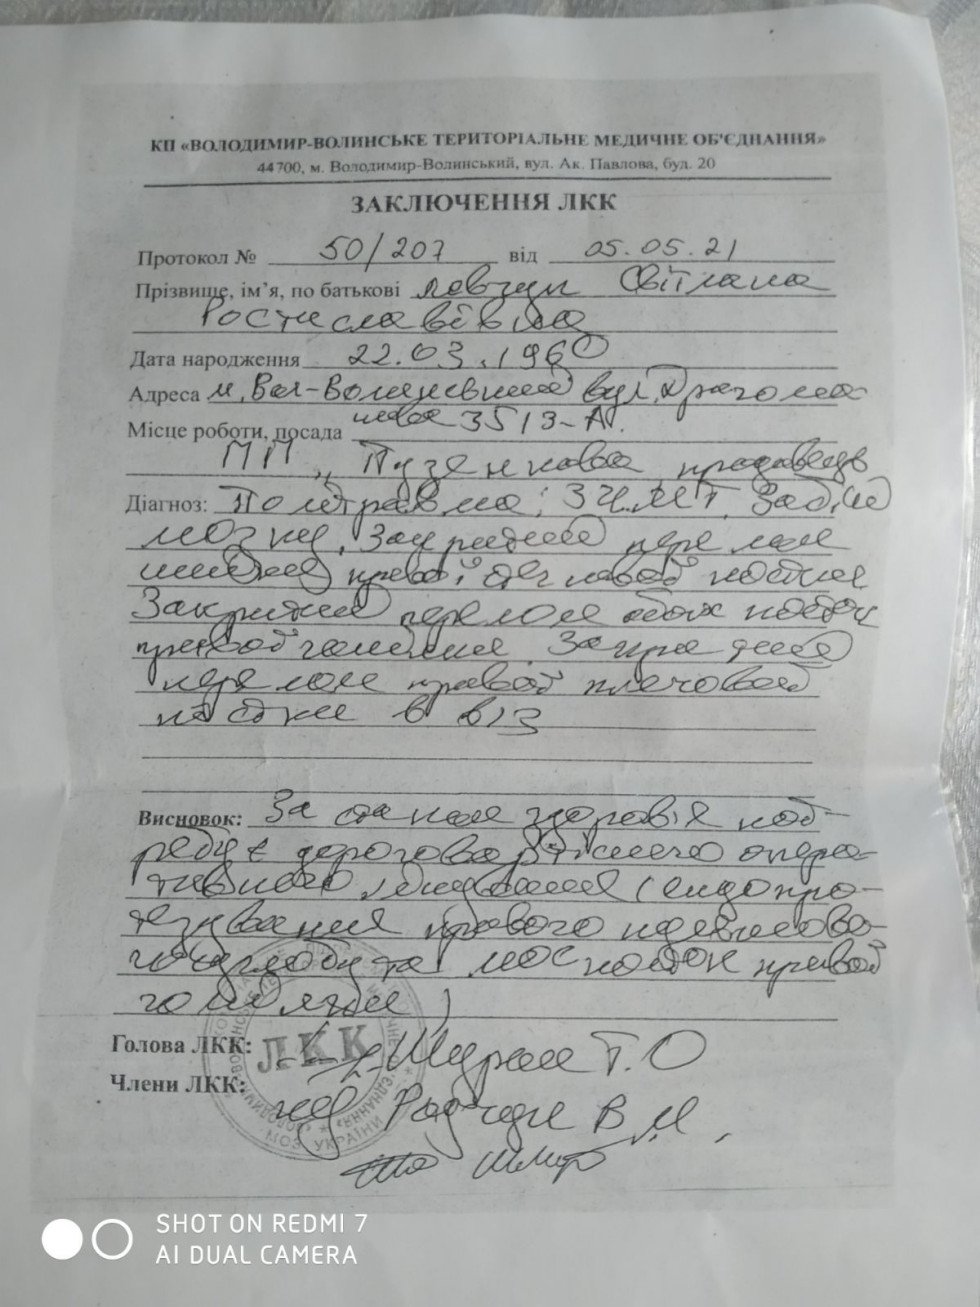 КП «ВОЛОДИМИР-ВОЛИНСЬКЕ ТЕРИТОРІАЛЬНЕ МЕДИЧНЕ ОБ'ЄДНАННЯ»
44700, м. Володимир-Волинський, вул. Ак. Павлова, буд. 20
ЗАКЛЮЧЕННЯ ЛКК
Протокол № 50/207 від 05.05.21
Прізвище, ім'я, по батькові Світлана
Ростиславівна
Дата народження 22.03.1960
Адреса м. Вол-Волинський вул. Драгома-
нова 35/3-А.
Місце роботи, посада
ПП продавець
Діагноз: Політравма: ЗЧМТ. Забій
мозку. Закритий перелом
шийки правої стегнової кістки
Закритий перелом обох кісток
правої гомілки. Закритий
перелом правої плечової
кістки в в/3
Висновок: За станом здоров'я пот-
ребує дороговартісного опера-
тивного лікування (ендопро-
тезування правого кульшово-
го суглобу та МОС кісток правої
гомілки)
Голова ЛКК: Т.О
Члени ЛКК: В.М.
ЛКК
МОЗ УКРАЇНИ
SHOT ON REDMI 7
AI DUAL CAMERA